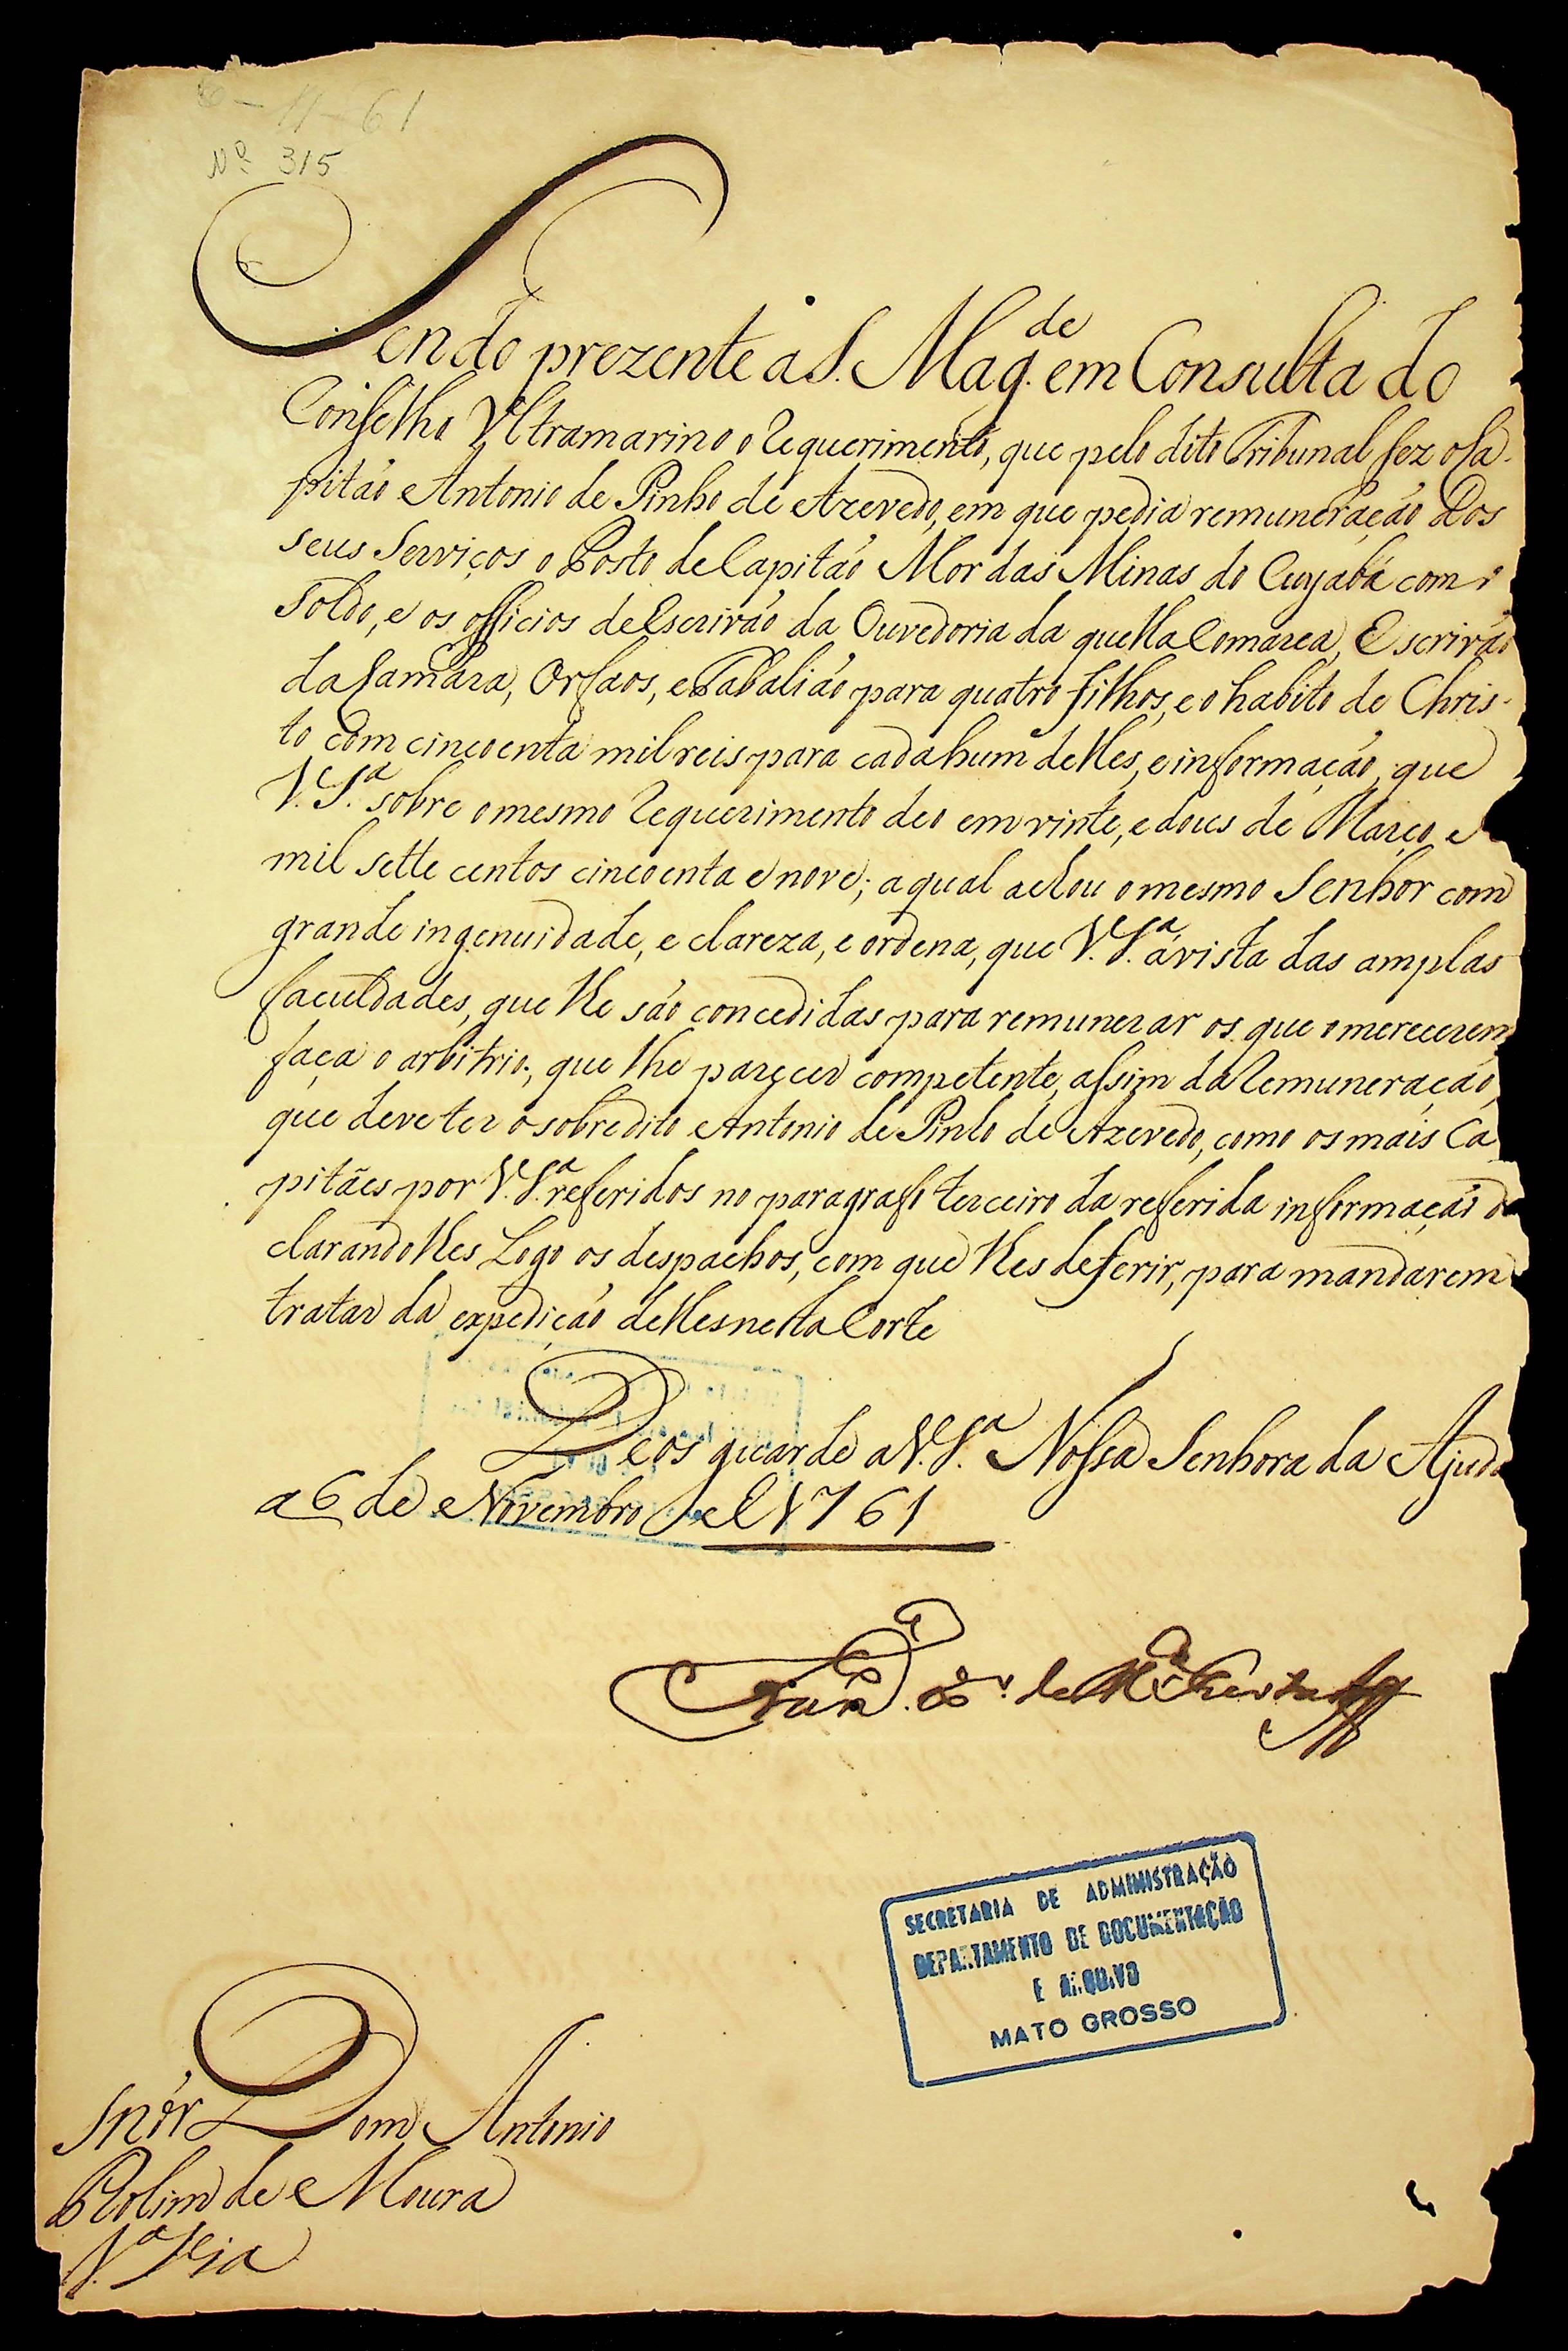 6-11-61
Nº 315
Sendo prezente a S. Mag.de em Consulta do
Conselho Vltramarino o requerimento, que pelo dito Tribunal fez o Ca-
pitão Antonio de Pinho de Azevedo, em que pedia remuneração dos
seus Serviços o Posto de Capitão Mor das Minas do Cuyabá com
Soldo, e os officios de Escrivão da Ouvedoria da quella Comarca, Escrivão
da Camara, Orfaos, e Tabalião para quatro filhos, e o habito de Chris-
to com cincoenta mil reis para cada hum delles, e informação, que
V. S.ª sobre o mesmo requerimento deo em vinte, e dous de Março, e
mil sette centos cincoenta e nove; a qual achou o mesmo Senhor com
grande ingenuidade, e clareza, e ordena, que V. S.ª á vista das amplas
faculdades, que lhe são concedidas para remunerar os que o merecerem
faça o arbitrio, que lhe parecer competente, assim da remuneração,
que deve ter o sobredito Antonio de Pinho de Azevedo, como os mais Ca
pitães por V. S.ª referidos no paragrafo terceiro da referida informação de
clarandolhes Logo os despachos, com que lhes deferir, para mandarem
tratar da expedição delles nesta Corte
Deos guarde a V. S.ª Nossa Senhora da Ajuda
a 6 de Novembro de 1761
Fran.co X.er de M.ça Furtado
SECRETARIA DE ADMINISTRAÇÃO
DEPARTAMENTO DE DOCUMENTAÇÃO
E ARQUIVO
MATO GROSSO
Snõr Dom Antonio
Rolim de Moura
1.ª Via